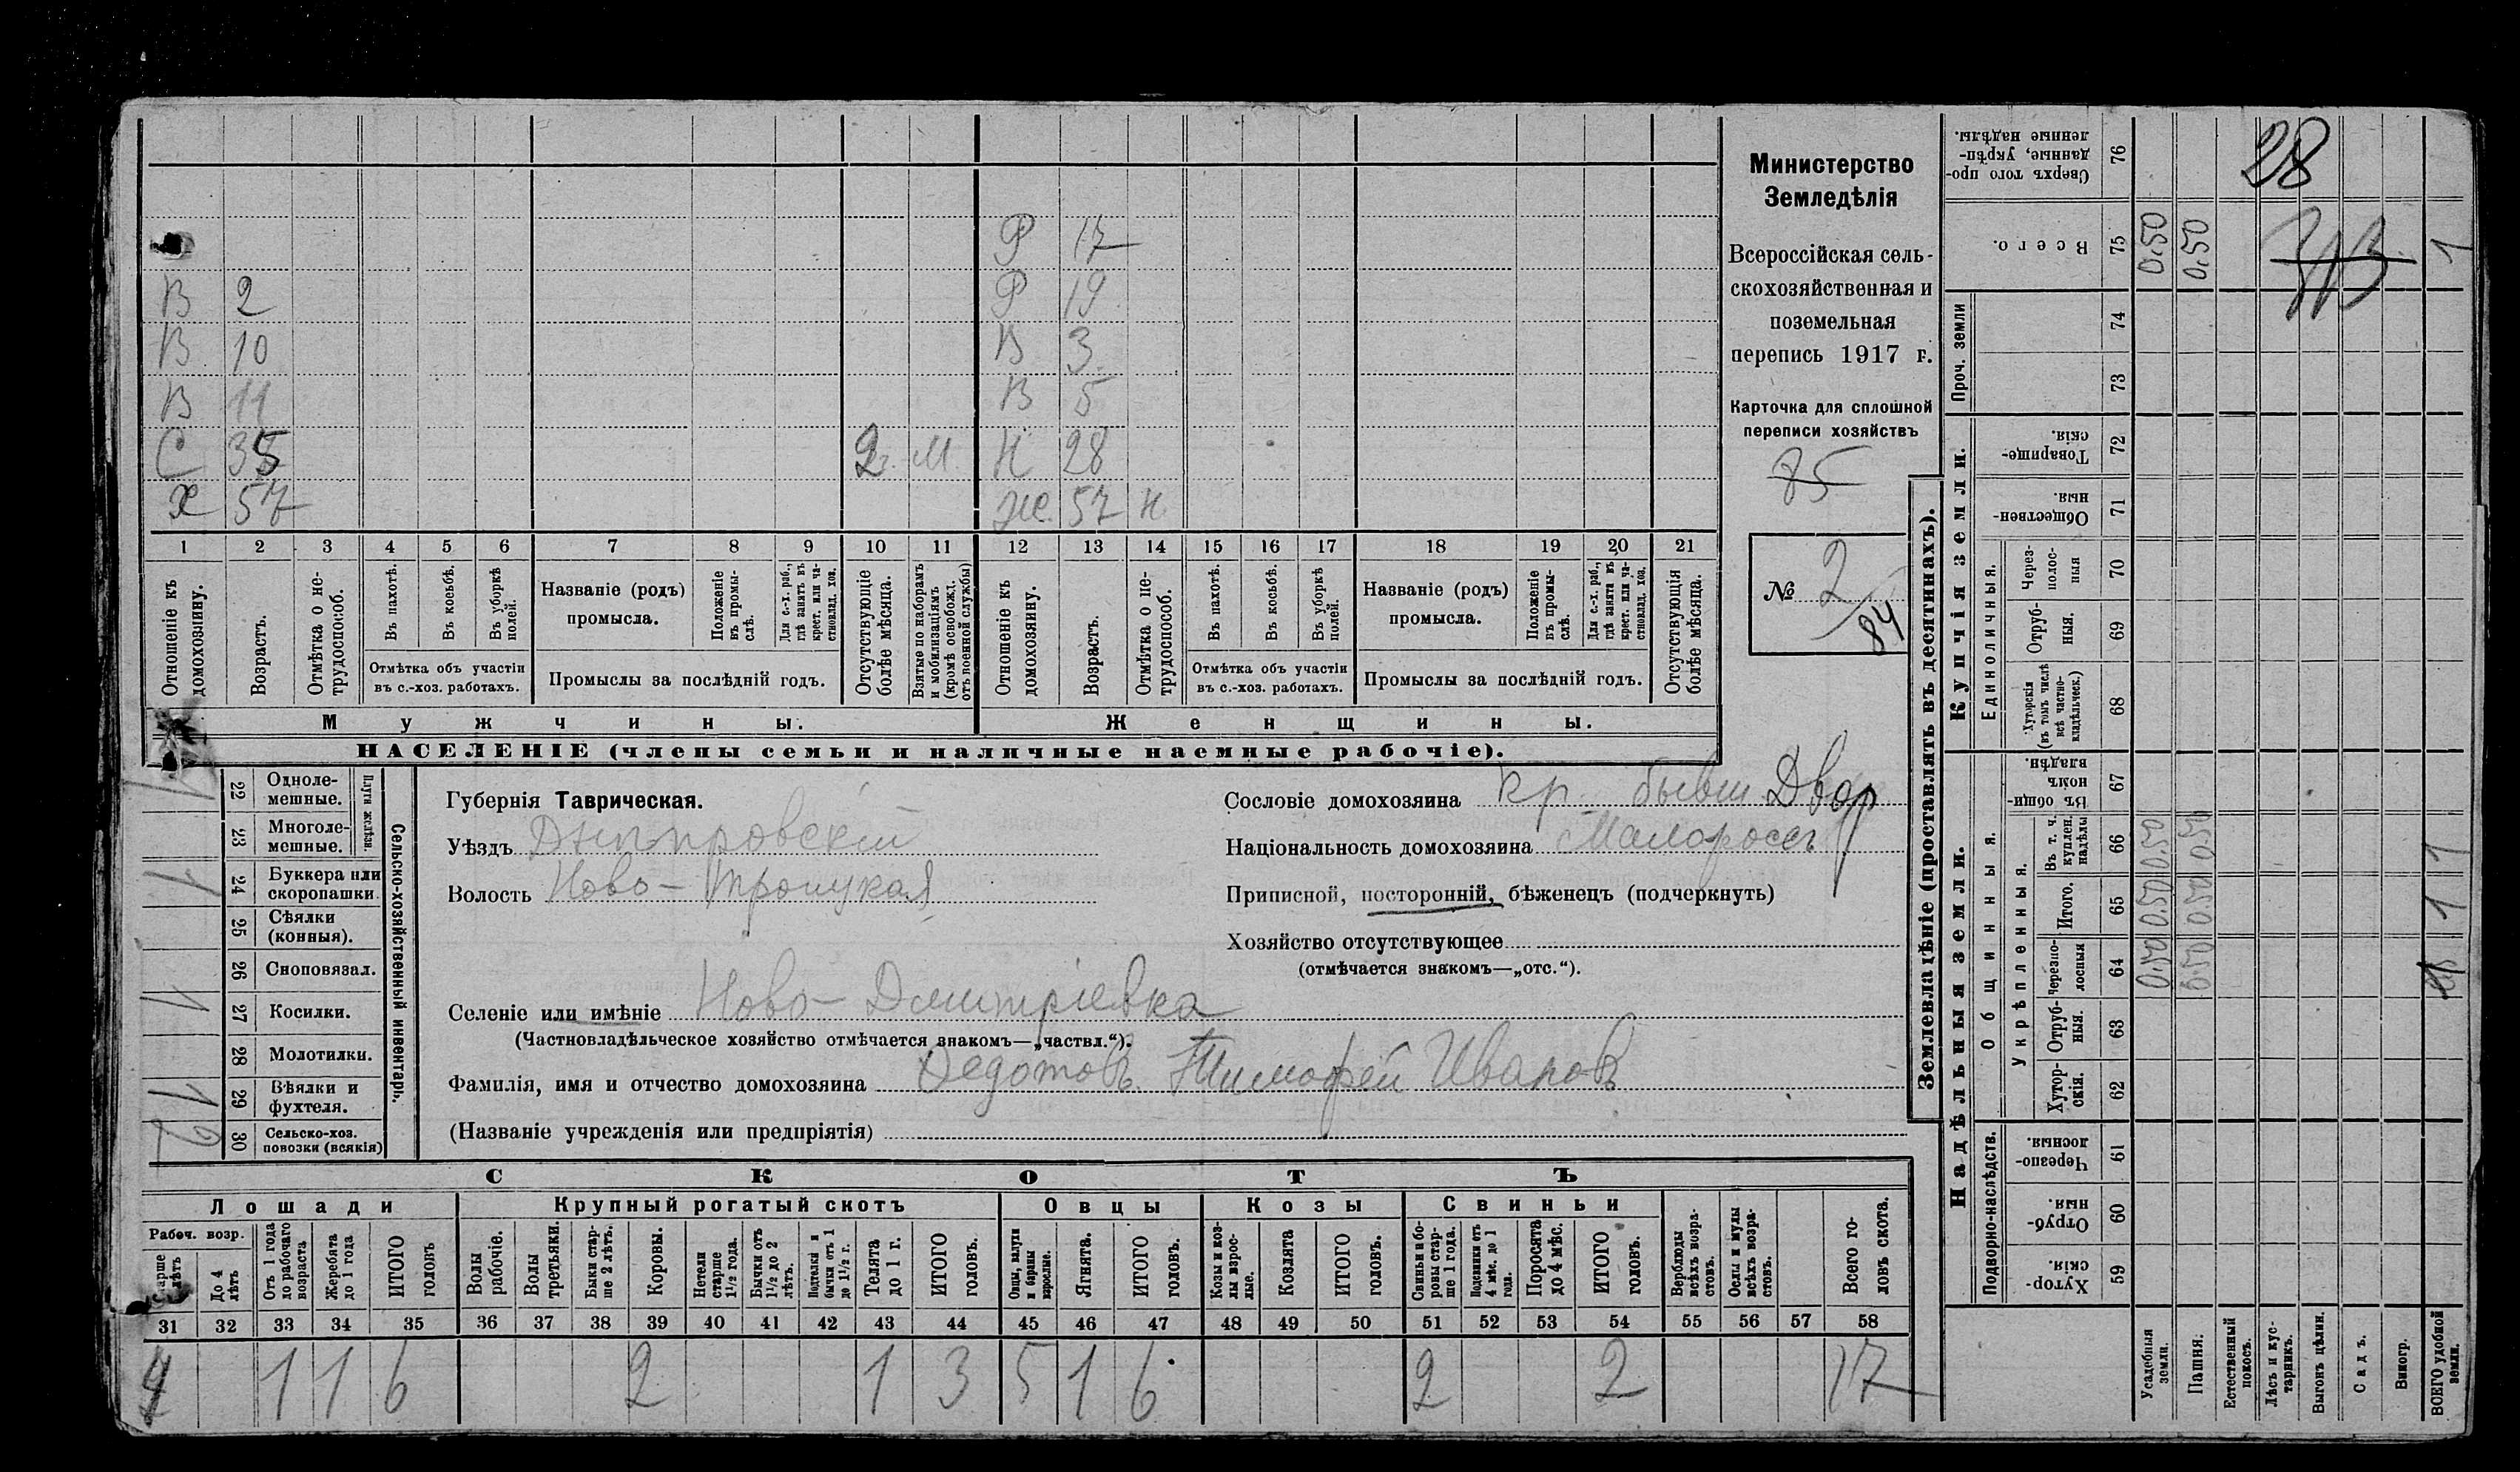 Министерство
Земледѣлія
Всероссійская сель-
скохозяйственная и
поземельная
перепись 1917 г.
Карточка для сплошной
переписи хозяйствъ
85
№ 2
84
Р 17
В 2 Р 19
В 10 В 3
В 11 В 5
С 35 2 М Н 28
Х 57 Ж 57 Н
1 2 3 4 5 6 7 8 9 10 11 12 13 14 15 16 17 18 19 20 21
Отношеніе къ домохозяину.
Возрастъ.
Отмѣтка о не-трудоспособ.
Въ пахотѣ.
Въ косьбѣ.
Въ уборкѣ полей.
Отмѣтка объ участіи
въ с.-хоз. работахъ.
Названіе (родъ)
промысла.
Положеніе въ промы-слѣ.
Для с.-х. раб., гдѣ занятъ въ крест. или ча-стновлад. хоз.
Промыслы за послѣдній годъ.
Отсутствующіе болѣе мѣсяца.
Взятые по наборамъ и мобилизаціямъ (кромѣ освобожд. отъ военной службы)
Отношеніе къ домохозяину.
Возрастъ.
Отмѣтка о не-трудоспособ.
Въ пахотѣ.
Въ косьбѣ.
Въ уборкѣ полей.
Отмѣтка объ участіи
въ с.-хоз. работахъ.
Названіе (родъ)
промысла.
Положеніе въ промы-слѣ.
Для с.-х. раб., гдѣ занята въ крест. или ча-стновлад. хоз.
Промыслы за послѣдній годъ.
Отсутствующія болѣе мѣсяца.
Мужчины. Женщины.
НАСЕЛЕНІЕ (члены семьи и наличные наемные рабочіе).
Сельско-хозяйственный инвентарь.
Плуги желѣзн.
22 Одноле-мешные. 1
23 Многоле-мешные.
24 Буккера или скоропашки. 1
25 Сѣялки (конныя).
26 Сноповязал.
27 Косилки. 1
28 Молотилки.
29 Вѣялки и фухтеля. 1
30 Сельско-хоз. повозки (всякія) 2
Губернія Таврическая.
Уѣздъ Днѣпровскій
Волость Ново-Троицкая
Сословіе домохозяина кр. бывш Двор
Національность домохозяина Малоросс
Приписной, посторонній, бѣженецъ (подчеркнуть)
Хозяйство отсутствующее
(отмѣчается знакомъ—„отс.“).
Селеніе или имѣніе Ново-Дмитріевка
(Частновладѣльческое хозяйство отмѣчается знакомъ—„частвл.“).
Фамилія, имя и отчество домохозяина Федотовъ Тимофей Ивановъ
(Названіе учрежденія или предпріятія)
СКОТЪ
Лошади Крупный рогатый скотъ Овцы Козы Свиньи
Рабоч. возр.
До 4 лѣтъ
Отъ 1 года до рабочаго возраста
Жеребята до 1 года
ИТОГО головъ
Волы рабочіе.
Волы третьяки.
Быки стар-ше 2 лѣтъ.
Коровы.
Нетели старше 1½ года.
Бычки отъ 1½ до 2 лѣтъ.
Подтелки и бычки отъ 1 до 1½ г.
Телята до 1 г.
ИТОГО головъ.
Овцы, валухи и бараны взрослые.
Ягнята.
ИТОГО головъ.
Козы и коз-лы взрос-лые.
Козлята
ИТОГО головъ.
Свиньи и бо-ровы стар-ше 1 года.
Подсвинки отъ 4 мѣс. до 1 года.
Поросята до 4 мѣс.
ИТОГО головъ.
Верблюды всѣхъ возра-стовъ.
Ослы и мулы всѣхъ возра-стовъ.
Всего го-ловъ скота.
31 32 33 34 35 36 37 38 39 40 41 42 43 44 45 46 47 48 49 50 51 52 53 54 55 56 57 58
4 1 1 6 2 1 3 5 1 6 2 2 17
Землевладѣніе (проставлять въ десятинахъ).
28
Сверхъ того про-данные, укрѣп-ленные надѣлы. 76
Всего. 75 0,50 0,50 1
Купчія земли.
Проч. земли 74
73
Товарище-скія. 72
Обществен-ныя. 71
Единоличныя.
Через-полос-ныя 70
Отруб-ныя. 69
Хуторскія (въ томъ числѣ всѣ частно-владѣльческ.) 68
Надѣльныя земли.
Общинныя.
Въ общи-номъ владѣн. 67
Укрѣпленныя.
Въ т. ч. куплен. надѣлы 66 0.50 0.50 1
Итого. 65 0.50 0.50 1
Черезпо-лосныя 64 0.50 0.50
Отруб-ныя. 63
Хутор-скія. 62
Подворно-наслѣдств.
Черезпо-лосныя. 61
Отруб-ныя. 60
Хутор-скія. 59
Усадебныя земли.
Пашня.
Естественный покосъ.
Лѣсъ и кус-тарникъ.
Выгонъ цѣлин.
Садъ.
Виногр.
ВСЕГО удобной земли.